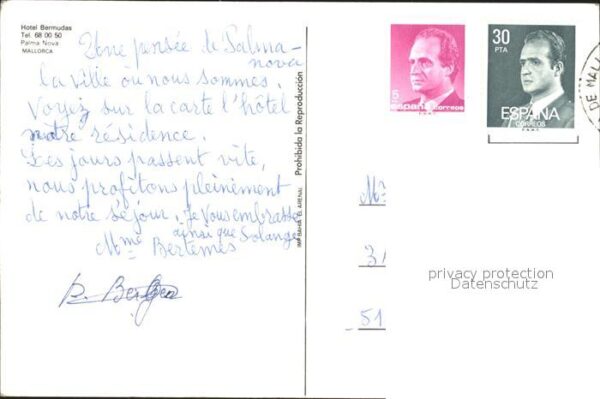 Hotel Bermudas
Tel. 68 00 50
Palma Nova
MALLORCA
Une pensée de Palma-
nova
la ville où nous sommes.
Voyez sur la carte l'hôtel
notre résidence.
Les jours passent vite,
nous profitons pleinement
de notre séjour. Je vous embrasse
ainsi que Solange
Mme Bertemes
Prohibida la Reproducción
IMP. BAHIA EL ARENAL
5
ESPAÑA correos
30
PTA
ESPAÑA
CORREOS
DE MALL
M
3
51
privacy protection
Datenschutz